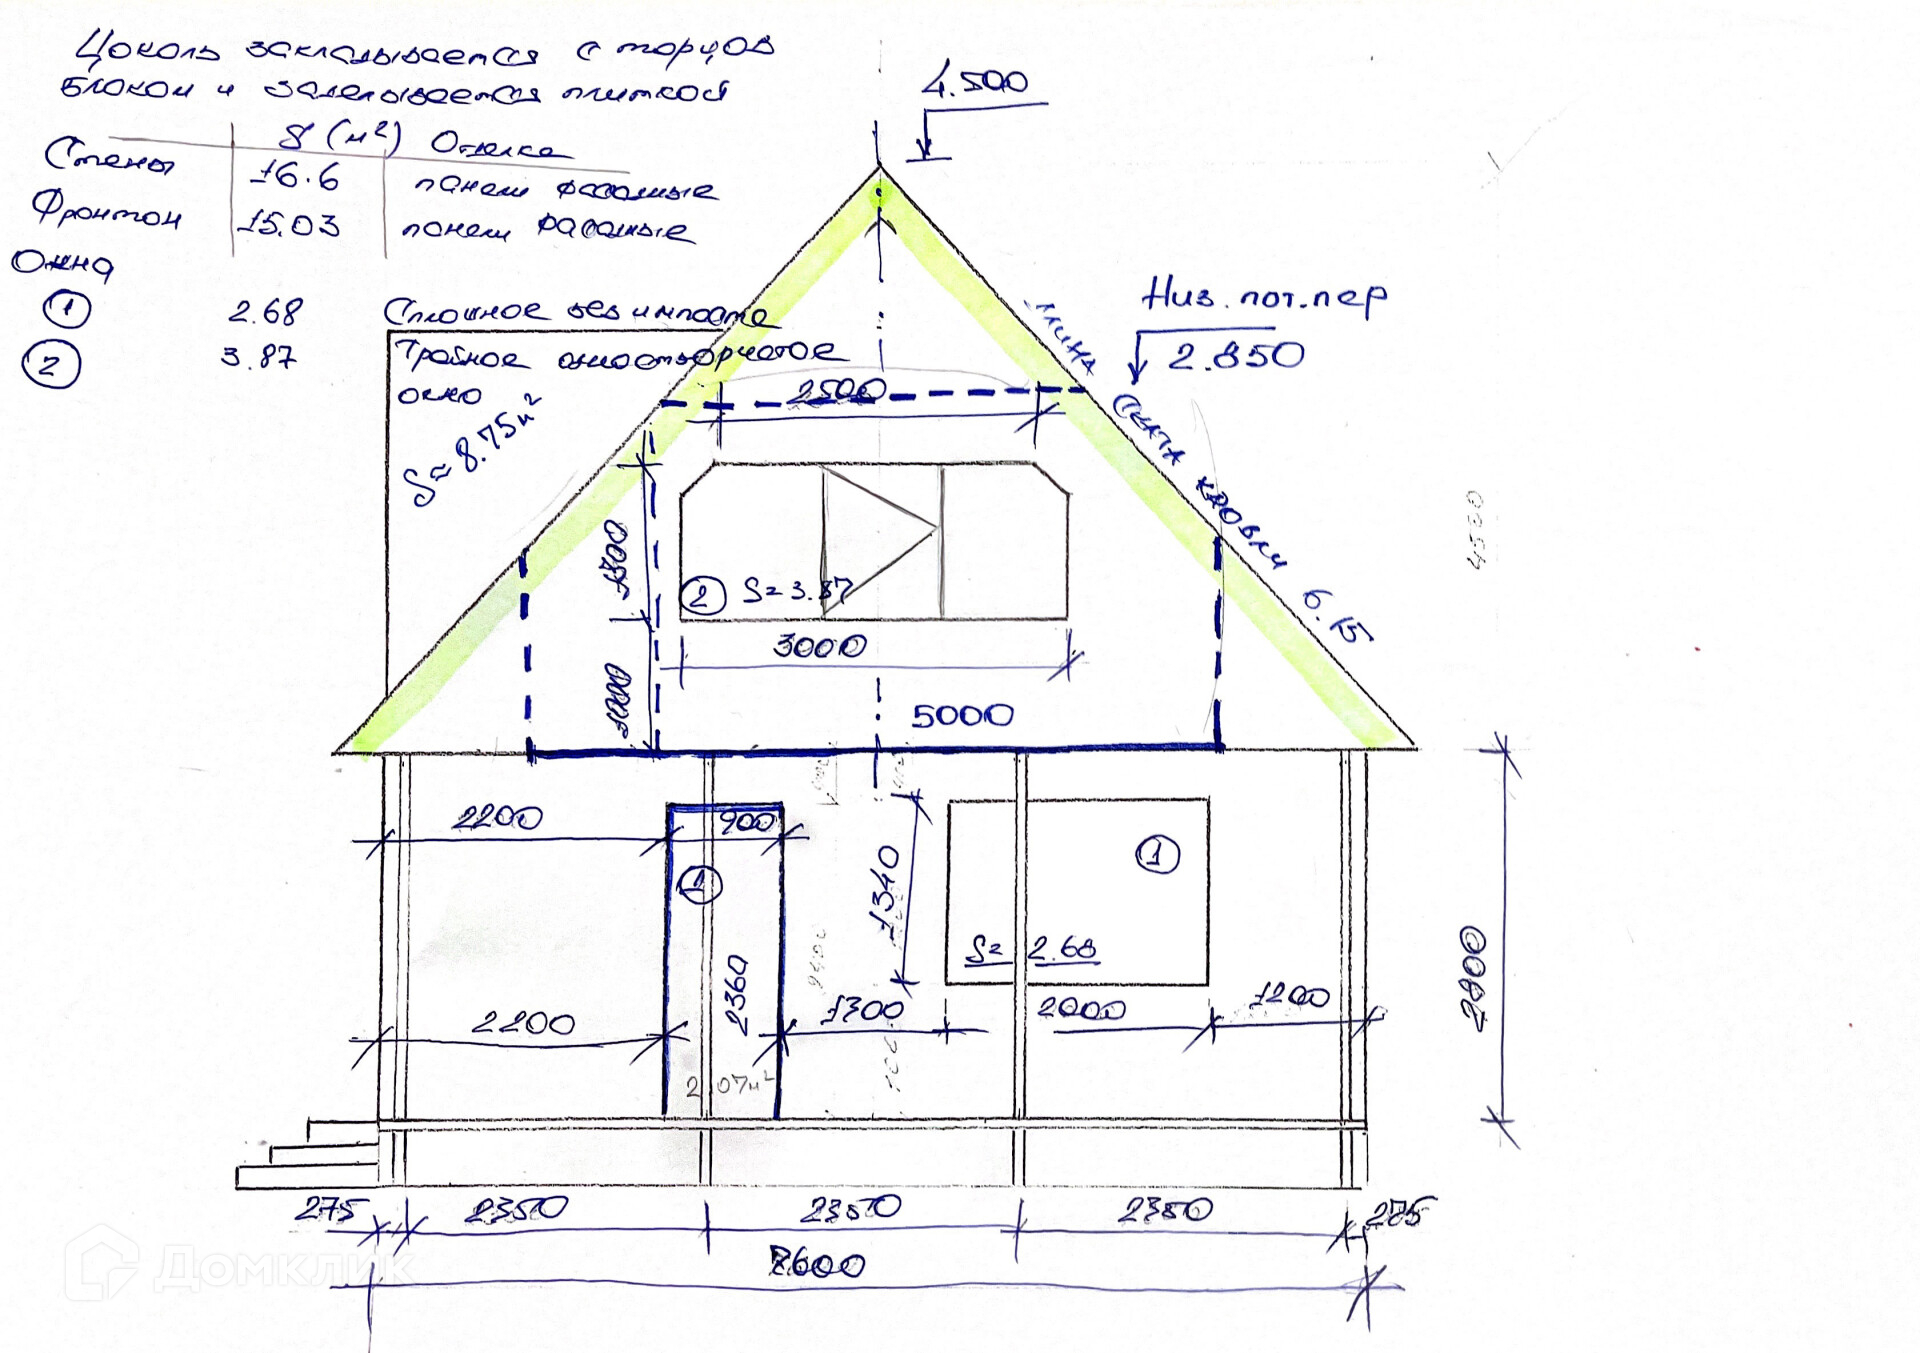 Цоколь закладывается с торцов
блоком и заделывается плиткой
S (м²) Отделка
Стены 16.6 панели фасадные
Фронтон 15.03 панели фасадные
Окна
1 2.68 Сплошное без импоста
2 3.87 Тройное одностворчатое
окно
S= 8.75м²
4.500
Низ. пот. пер
2.850
длина ската кровли 6.15
2500
1300
1000
2 S= 3.87
3000
5000
4500
2200
900
1
1
1340
S= 2.68
2360
2200
1300
2000
1200
2800
2.07м²
275 2350 2350 2350 275
7600
Домклик